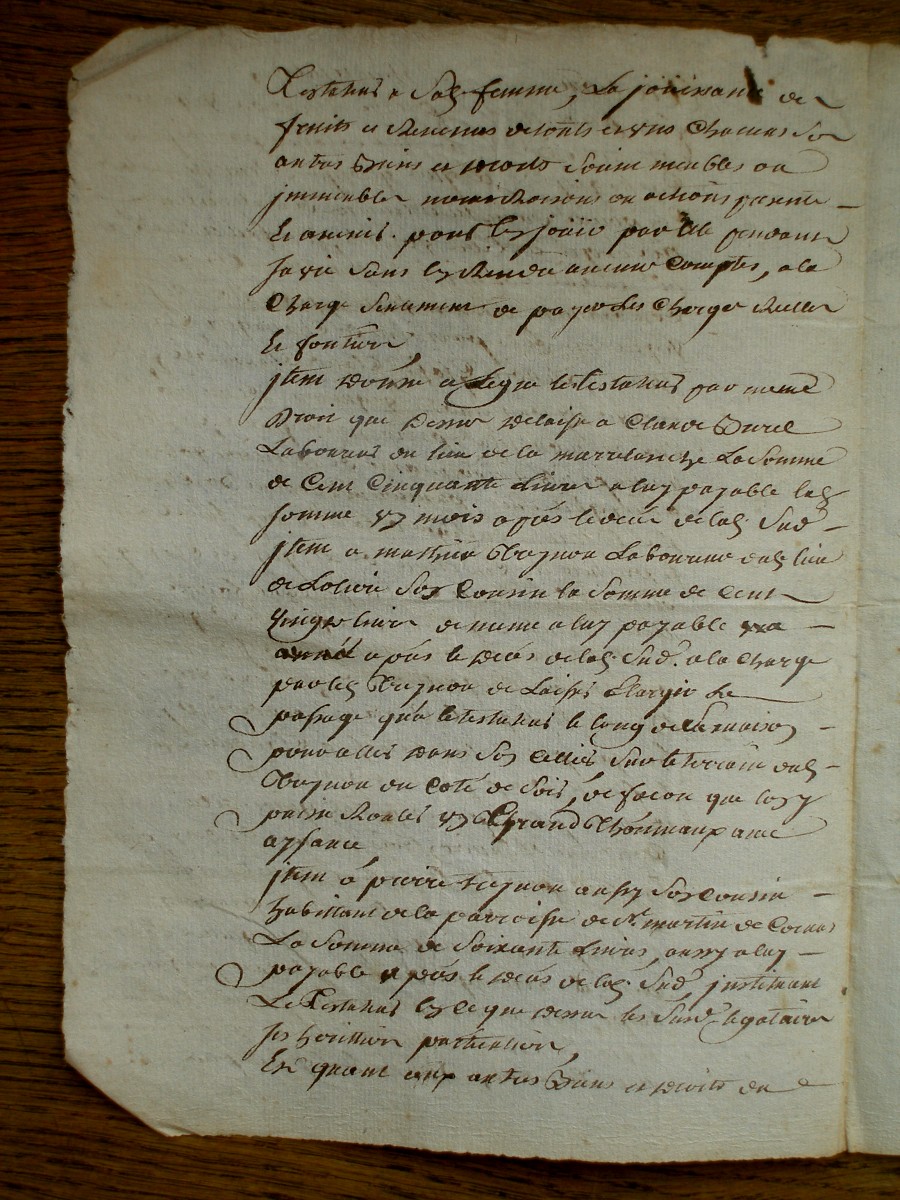 Testateur a sad. femme, La jouissance des
fruits et Revenus de touts et uns chacuns ses
autres Biens et droits soint meubles ou
immeubles noms Raisons ou actions presents
Et avenir. pour les jouir par elle pendant
sa vie sans les Rendre aucuns comptes, a la
Charge seulement de payer les charges Réelles
Et foncieres,
jtem donne et legue le testateur par meme
Droit que dessus delaisse a Claude Burel
Laboureur du lieu de la La Somme
de Cent Cinquante livres a luy payable lad.
somme un mois apres le deces de lad. Sud.
jtem a mathieu Vragnon Laboureur dud. lieu
de son Cousin la Somme de Cent
Vingt livres de meme a luy payable une
année apres le deces de lad. Sud. a la charge
par led. Vragnon de Laisser Elargir Le
passage qu'a le testateur le long de sa maison
pour aller dans son Cellier Sur le terrain dud.
Vragnon du Coté de Soir, de façon que l'on y
puisse Rouler un Grand thonneaux avec
aysance
jtem à pierre Vragnon aussy son Cousin
habittant de la parroisse de St. martin de
La Somme de Soixante Livres, aussy a luy
payable apres le deces de lad. Sud. jnstituant
Le Testateur En ce que dessus les Susd. legataires
ses heritiers particuliers,
Et quant aux autres Biens et droits du